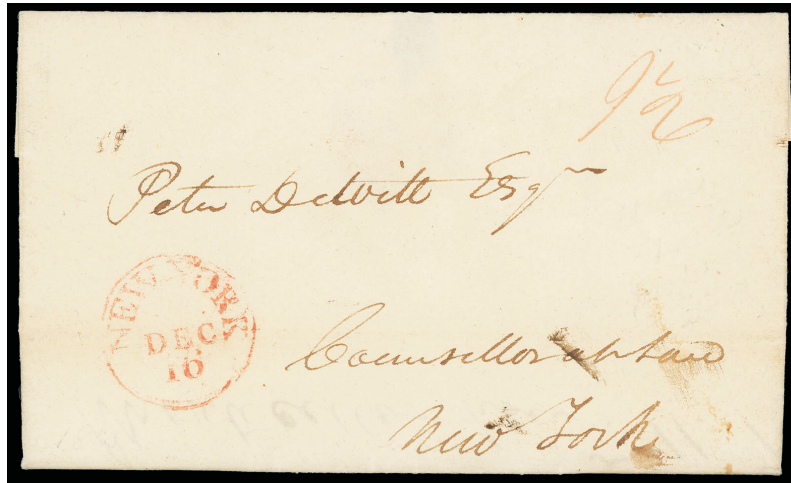 Peter DeWitt Esqr
NEW-YORK
DEC
16
Counsellor at Law
New York